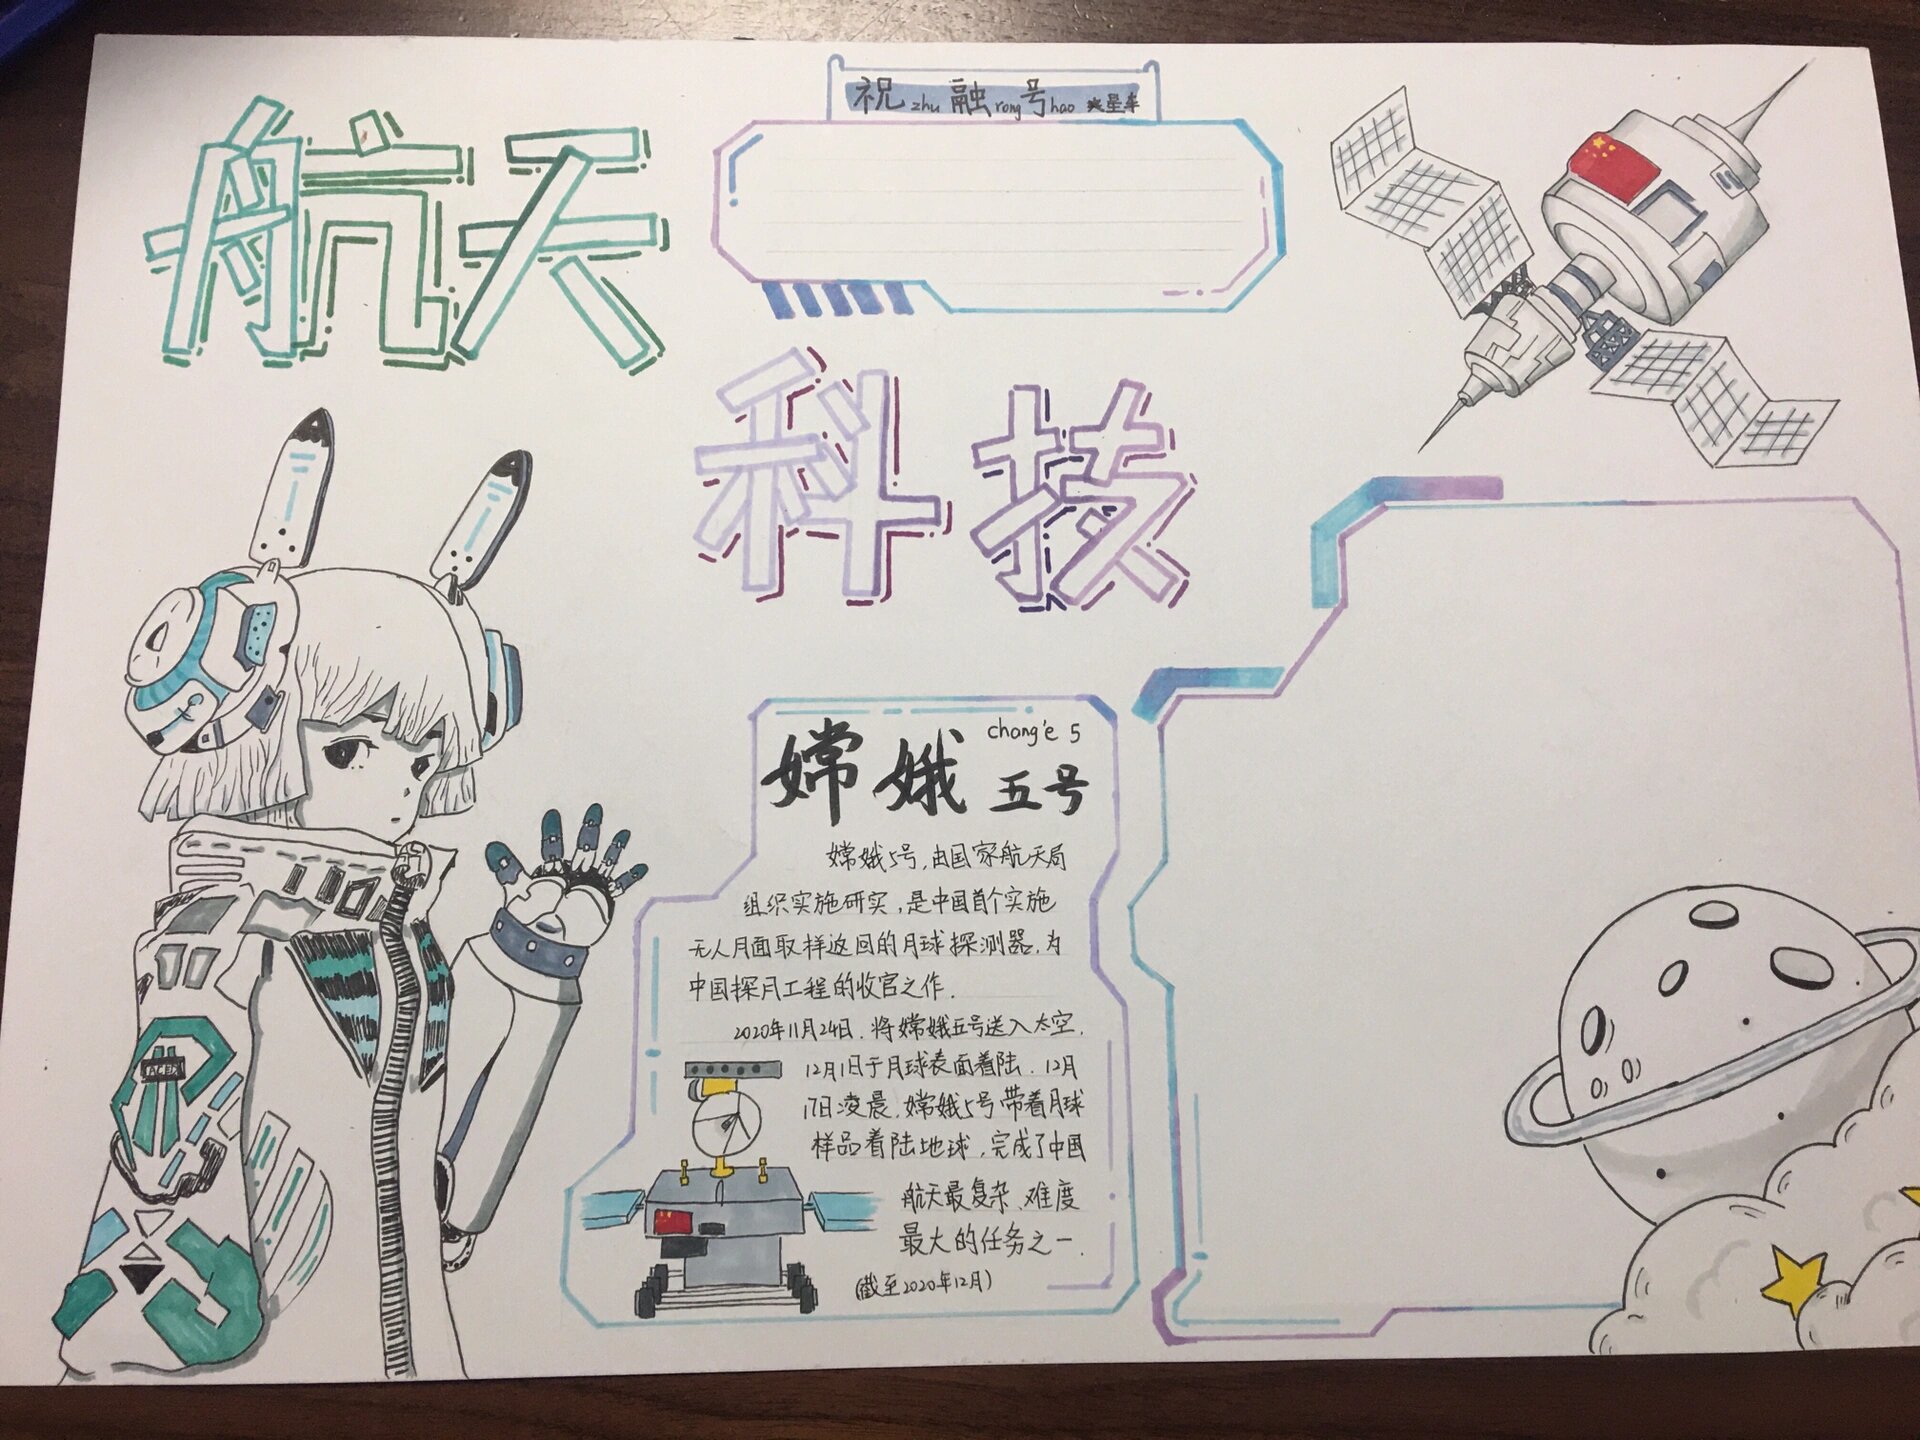 航天
祝zhu融rong号hao火星车
科技
chang'e 5
嫦娥五号
嫦娥5号,由国家航天局
组织实施研实,是中国首个实施
无人月面取样返回的月球探测器,为
中国探月工程的收官之作.
2020年11月24日,将嫦娥五号送入太空,
12月1日于月球表面着陆.12月
17日凌晨,嫦娥5号带着月球
样品着陆地球,完成了中国
航天最复杂、难度
最大的任务之一.
(截至2020年12月)